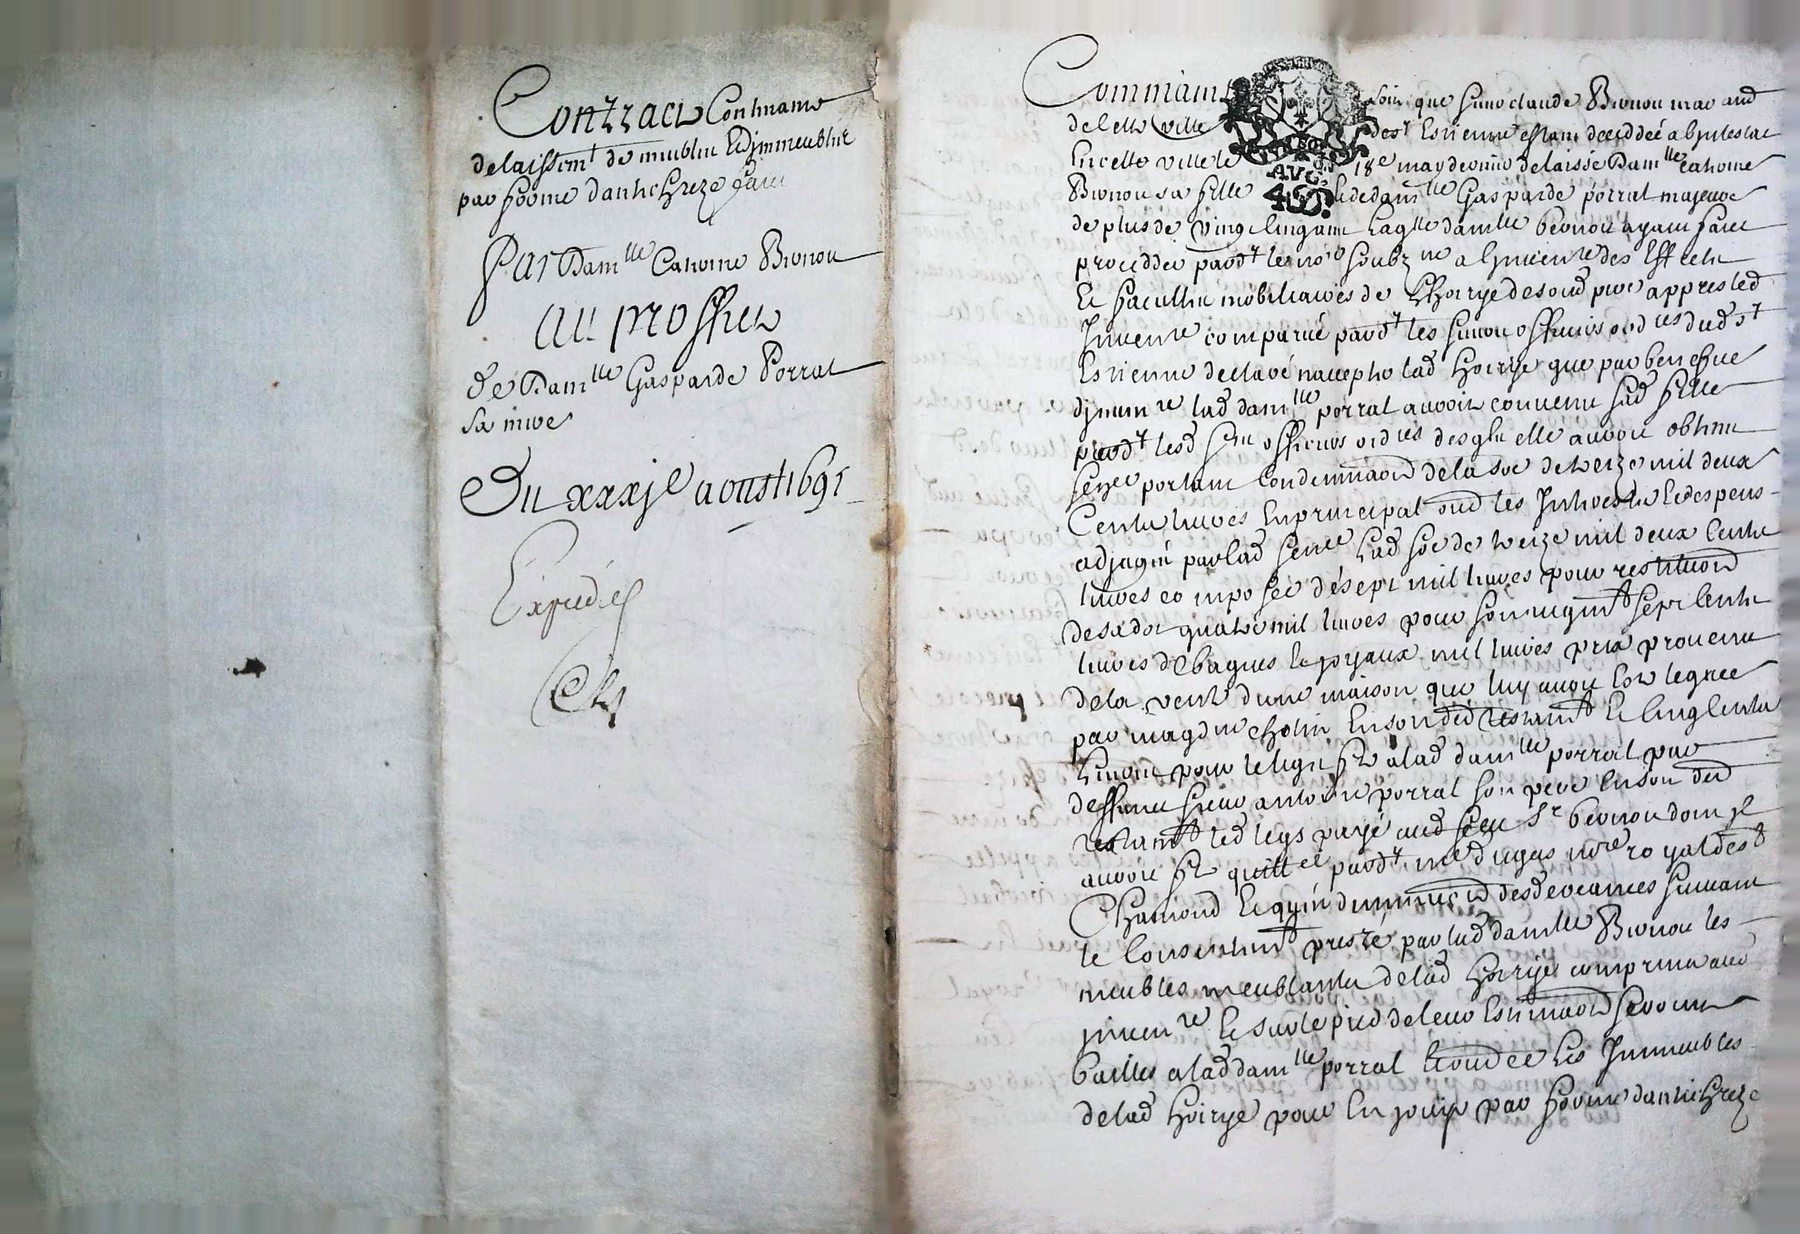 Contract Contenant
delaissemt de meuble & dimmeuble
par forme dantichreze faict
Par Damlle Catherine Bronou
au proffict
de Damlle Gasparde Porral
sa mere
Du xxxje aoust 1691
Expedié
Comme ainsi soit que sieur claude Bronou marchand
de cette ville de st Estienne estant deceddé abintestat
en cette ville le 18e may dernier delaissé Damlle Catherine
Bronou sa fille & de damlle Gasparde porral majeure
de plus de vingt cinq ans Laqlle damlle bronou ayant faict
procedder pardt le nore soubzne a linventre des Effects
& facultés mobiliaires de Lhoirye de sond pere appres led
Inventre comparue pardt les sieurs officiers ordres dud st
Estienne declaré naccepter lad hoirye que par beneffice
dinventre lad damlle porral auroit convenu sad fille
pardt lesd srs officiers ordres desqls elle auroit obtenu
sence portant Condemnaon de la soe de treize mil deux
Cents livres en principal oud les Interests & despens
adjugés par lad sence Lad soe de treize mil deux Cents
livres composée de sept mil livres pour restituon
de sa dot quatre mil livres pour son augmt sept Cents
livres de bagues & joyaux mil livres prix provenu
de la vente dune maison que luy avoit Esté leguée
par magdne cholin En son der testamt & Cinq Cents
Livres pour le legs ft a lad damlle porral par
deffunct sieur antoine porral son pere En son der
testamt led legs payé aud feu sr bronou dont jl
auroit ft quittce pardt me dugas nore royal de st
Chamond & qu'en diminuon desd creances suivant
le Consentemt presté par lad damlle Bronou les
meubles meublants de lad hoirye comprins aud
jnventre & sur le pied de leur Estimaon seroient
baillés a lad damlle porral & oud ce Les Immeubles
de lad hoirye pour En jouir par forme dantichreze
AVG.